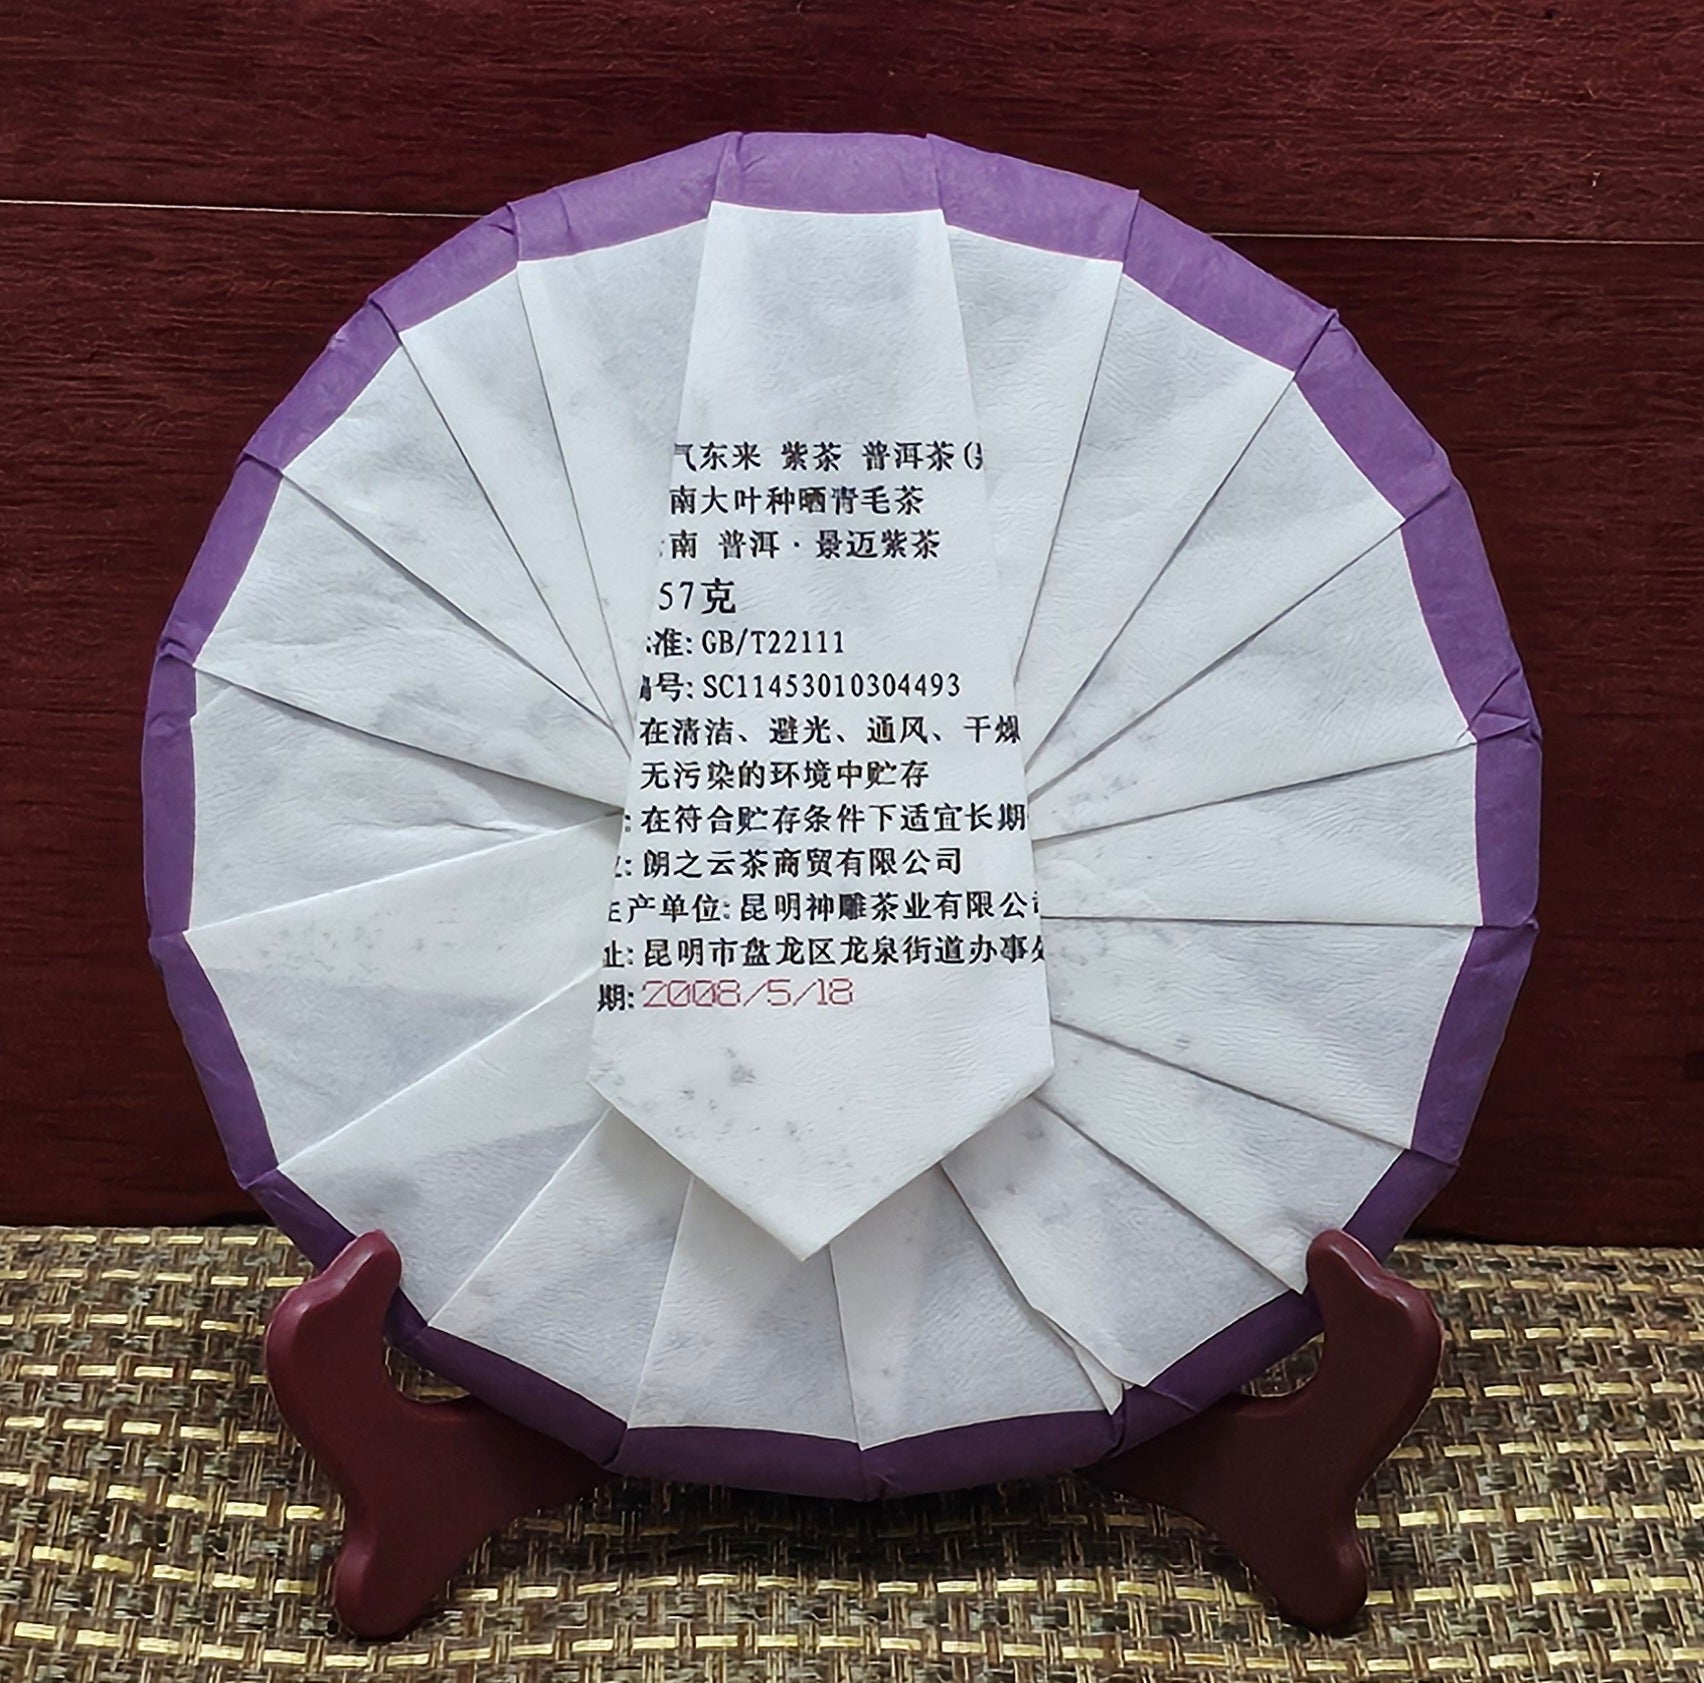 气东来 紫茶 普洱茶(
南大叶种晒青毛茶
南 普洱·景迈紫茶
57克
准: GB/T22111
号: SC11453010304493
在清洁、避光、通风、干燥
无污染的环境中贮存
: 在符合贮存条件下适宜长期
: 朗之云茶商贸有限公司
产单位: 昆明神雕茶业有限公司
址: 昆明市盘龙区龙泉街道办事处
期: 2008/5/18